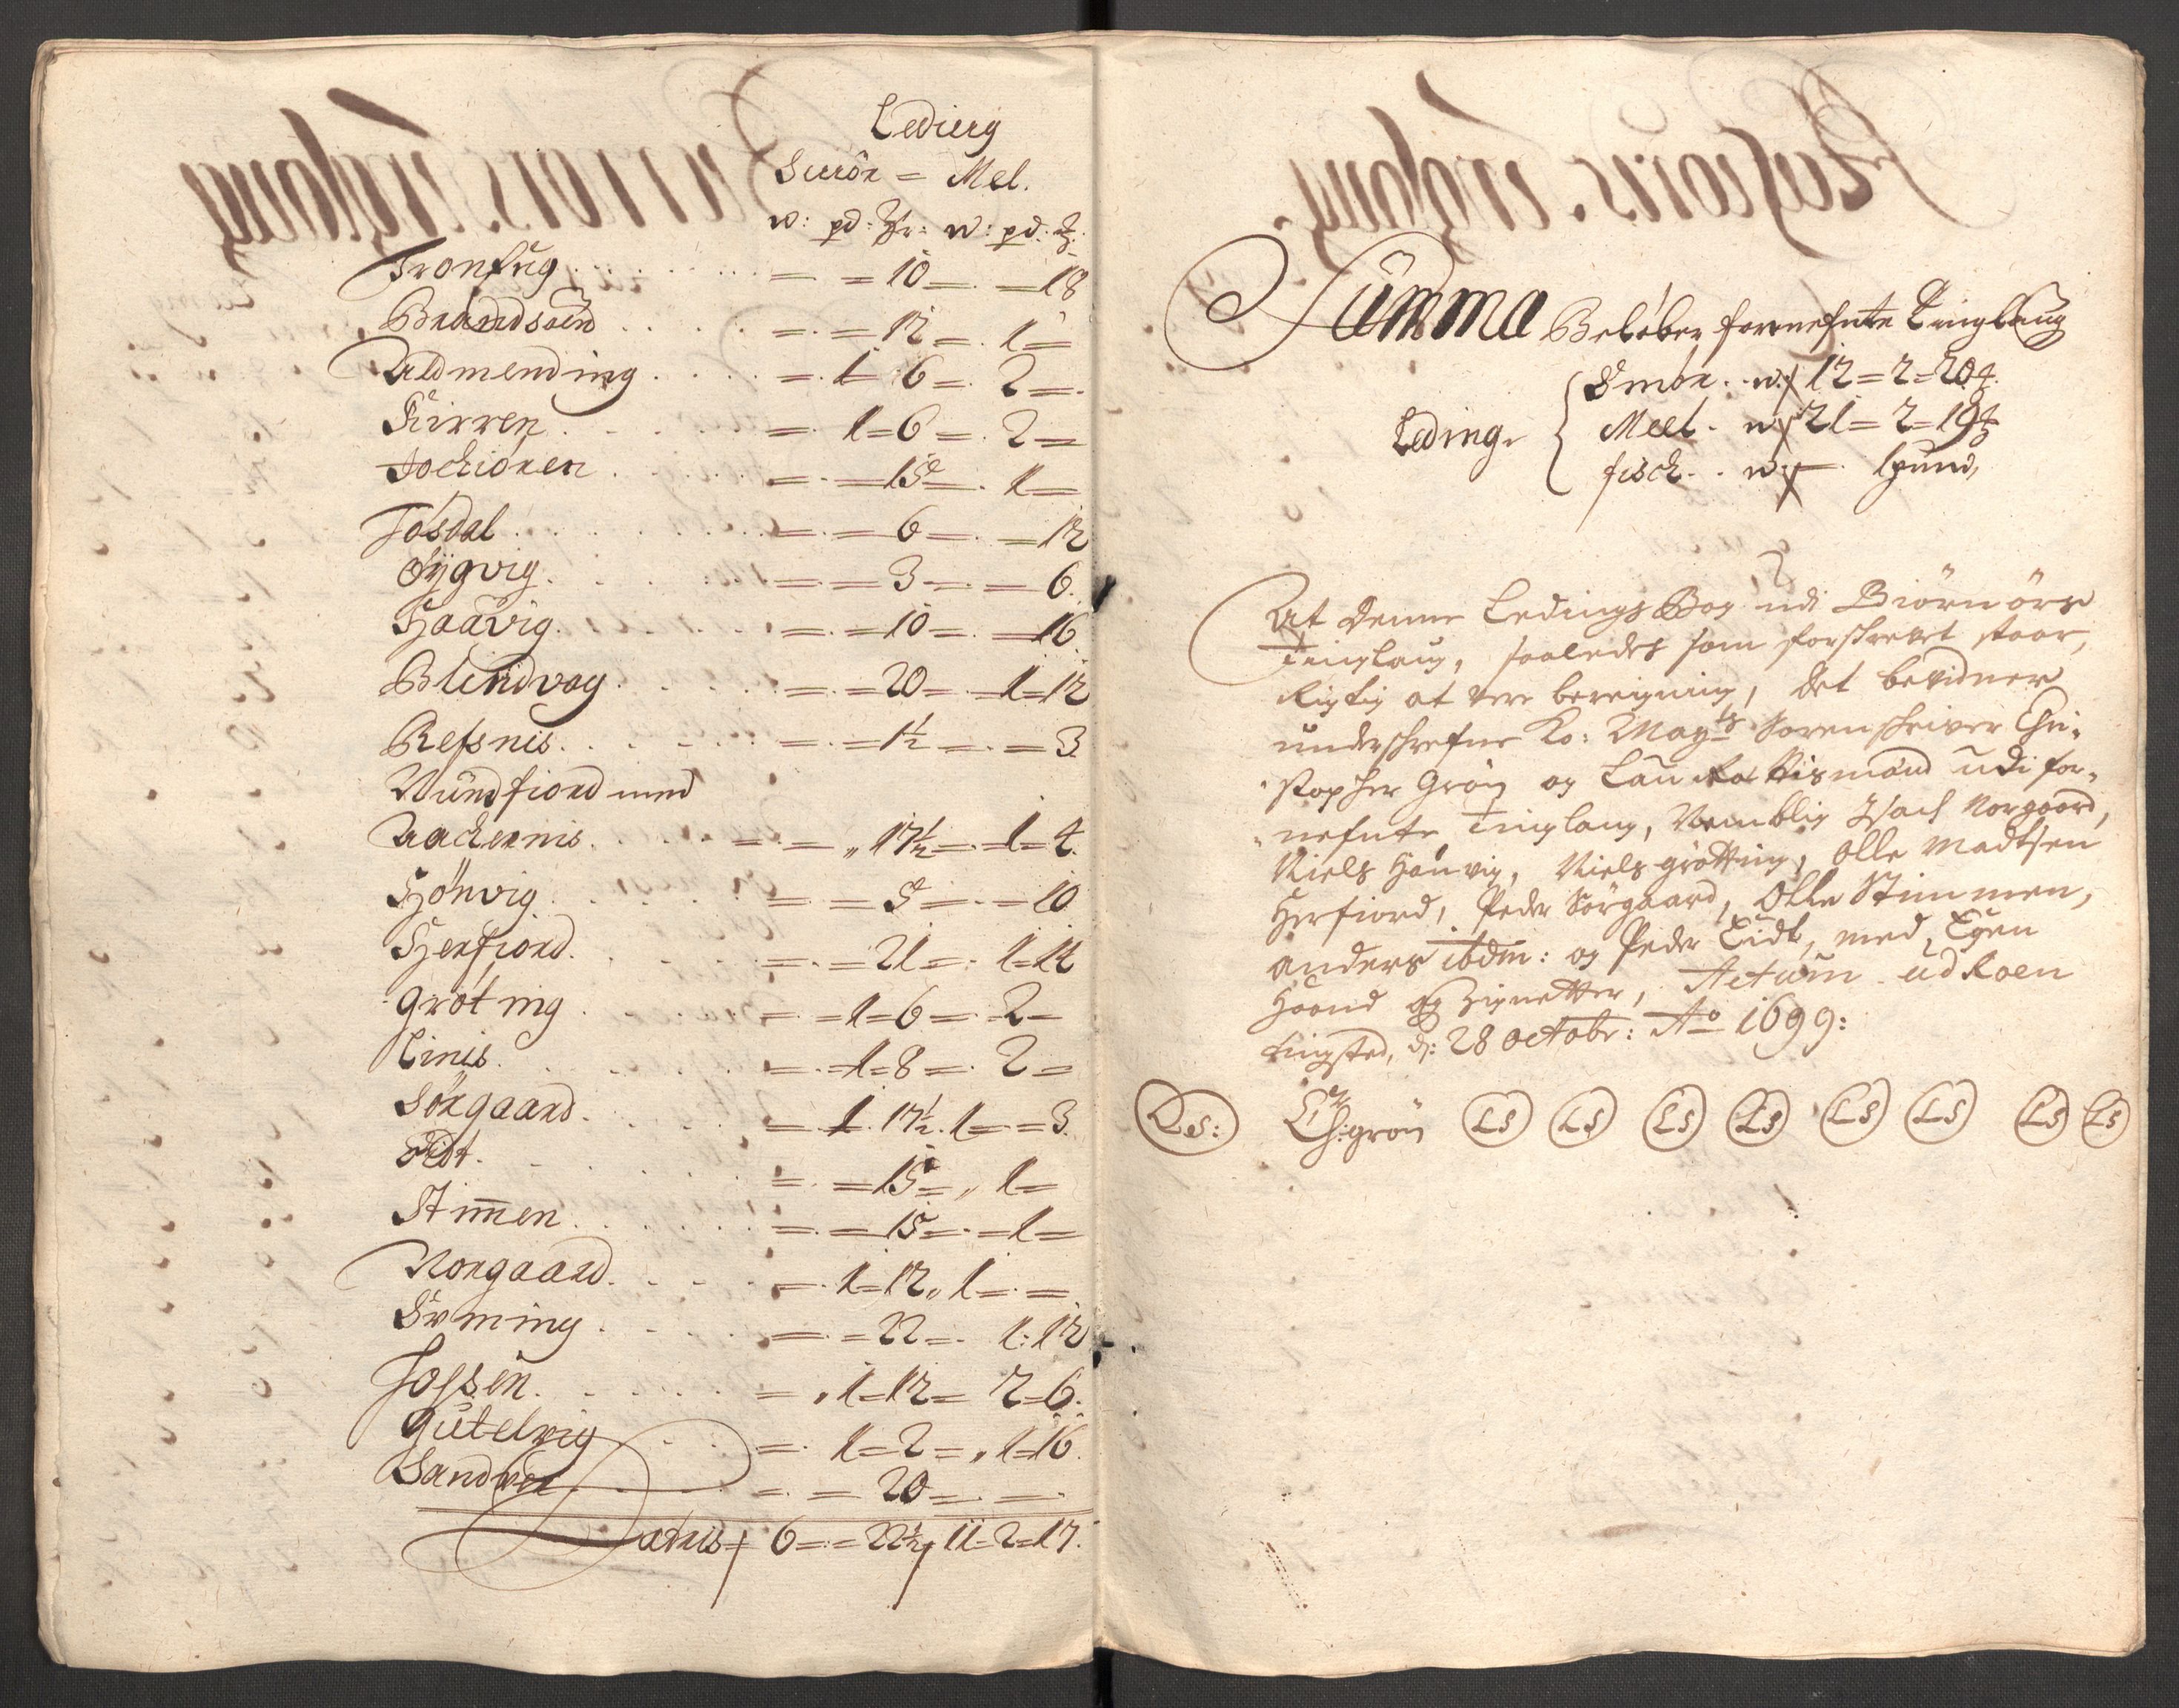 Leding
Smör = Mel.
w: pd: ℔r: w: pd: ℔:
Tronfug . . . = = 10 = . = 18
Brandsöen . . . = . = 12 = . 1 =
Aldmending . . . = . 1 = 6 = . 2 = .
Kirren . . . = . 1 = 6 = . 2 =
Tochiönen . . . = . = 15 = . 1 =
Tosdal . . . = . = 6 = . = 12
Sÿgvig . . . = . = 3 = . = 6.
Haavig . . . = . = 10 = . = 16.
Blindvag . . . = . = 20 = . 1 = 12
Refsnis . . . = . = 1½ = . = 3.
Vundfiord med
Aachernis . . . = . = „ 17½ = . 1 = 4.
Hönvig . . . = . = 5 = . = 10
Herfiord . . . = . = 21 = . 1 = 14
Gröting . . . = . 1 = 6 = . 2 =
Linis . . . = . 1 = 8 = . 2 =
Sörgaard . . . = . 1 . 17½ . 1 = = 3.
Eidt . . . = . = 15 = „ 1 =
Stim̄en . . . = . = 15 = . 1 =
Norgaard . . . = . 1 = 12 „ 1 = . =
Sörming . . . = . = 22 = . 1 : 12
Fossen . . . = „ 1 = 12 = 2 = 6.
Gutelvig . . . = . 1 = 2 = „ 1 = 16.
Sandvér . . . = . = 20 = . = .
Latus 6 = . = 22½ 11 = 2 = 17.
Summa Beløber forrnefnte Tinglaug
Smör . w: 12 = 2 = 20 ℔.
Leding Meel . w: 21 = 2 = 19 ℔
fisch . . w: = . 1 pund,
At denne Ledings Bog udi Biörnörs
Tinglaug, saaledes som forschrevet staar,
Rigtig at vere bereigning, det bevidner
underschrefne Ko: Mayts Sorenschriver Chri-
stopher Grön og Lau Rettismænd udi for-
nefnte Tinglaug, Nemblig Isach Norgaard,
Niels Hauvig, Niels gröttning, Olle Madtsen
Herfiord, Peder Sörgaard, Olle Stimmen,
Anders ibdm: og Peder Eidt, med Egen
Haand og Zignetter, Actum udRoen
tingsted, d: 28 Octobr: Ao 1699:
LS: Ch: grön LS LS LS LS LS LS LS LS